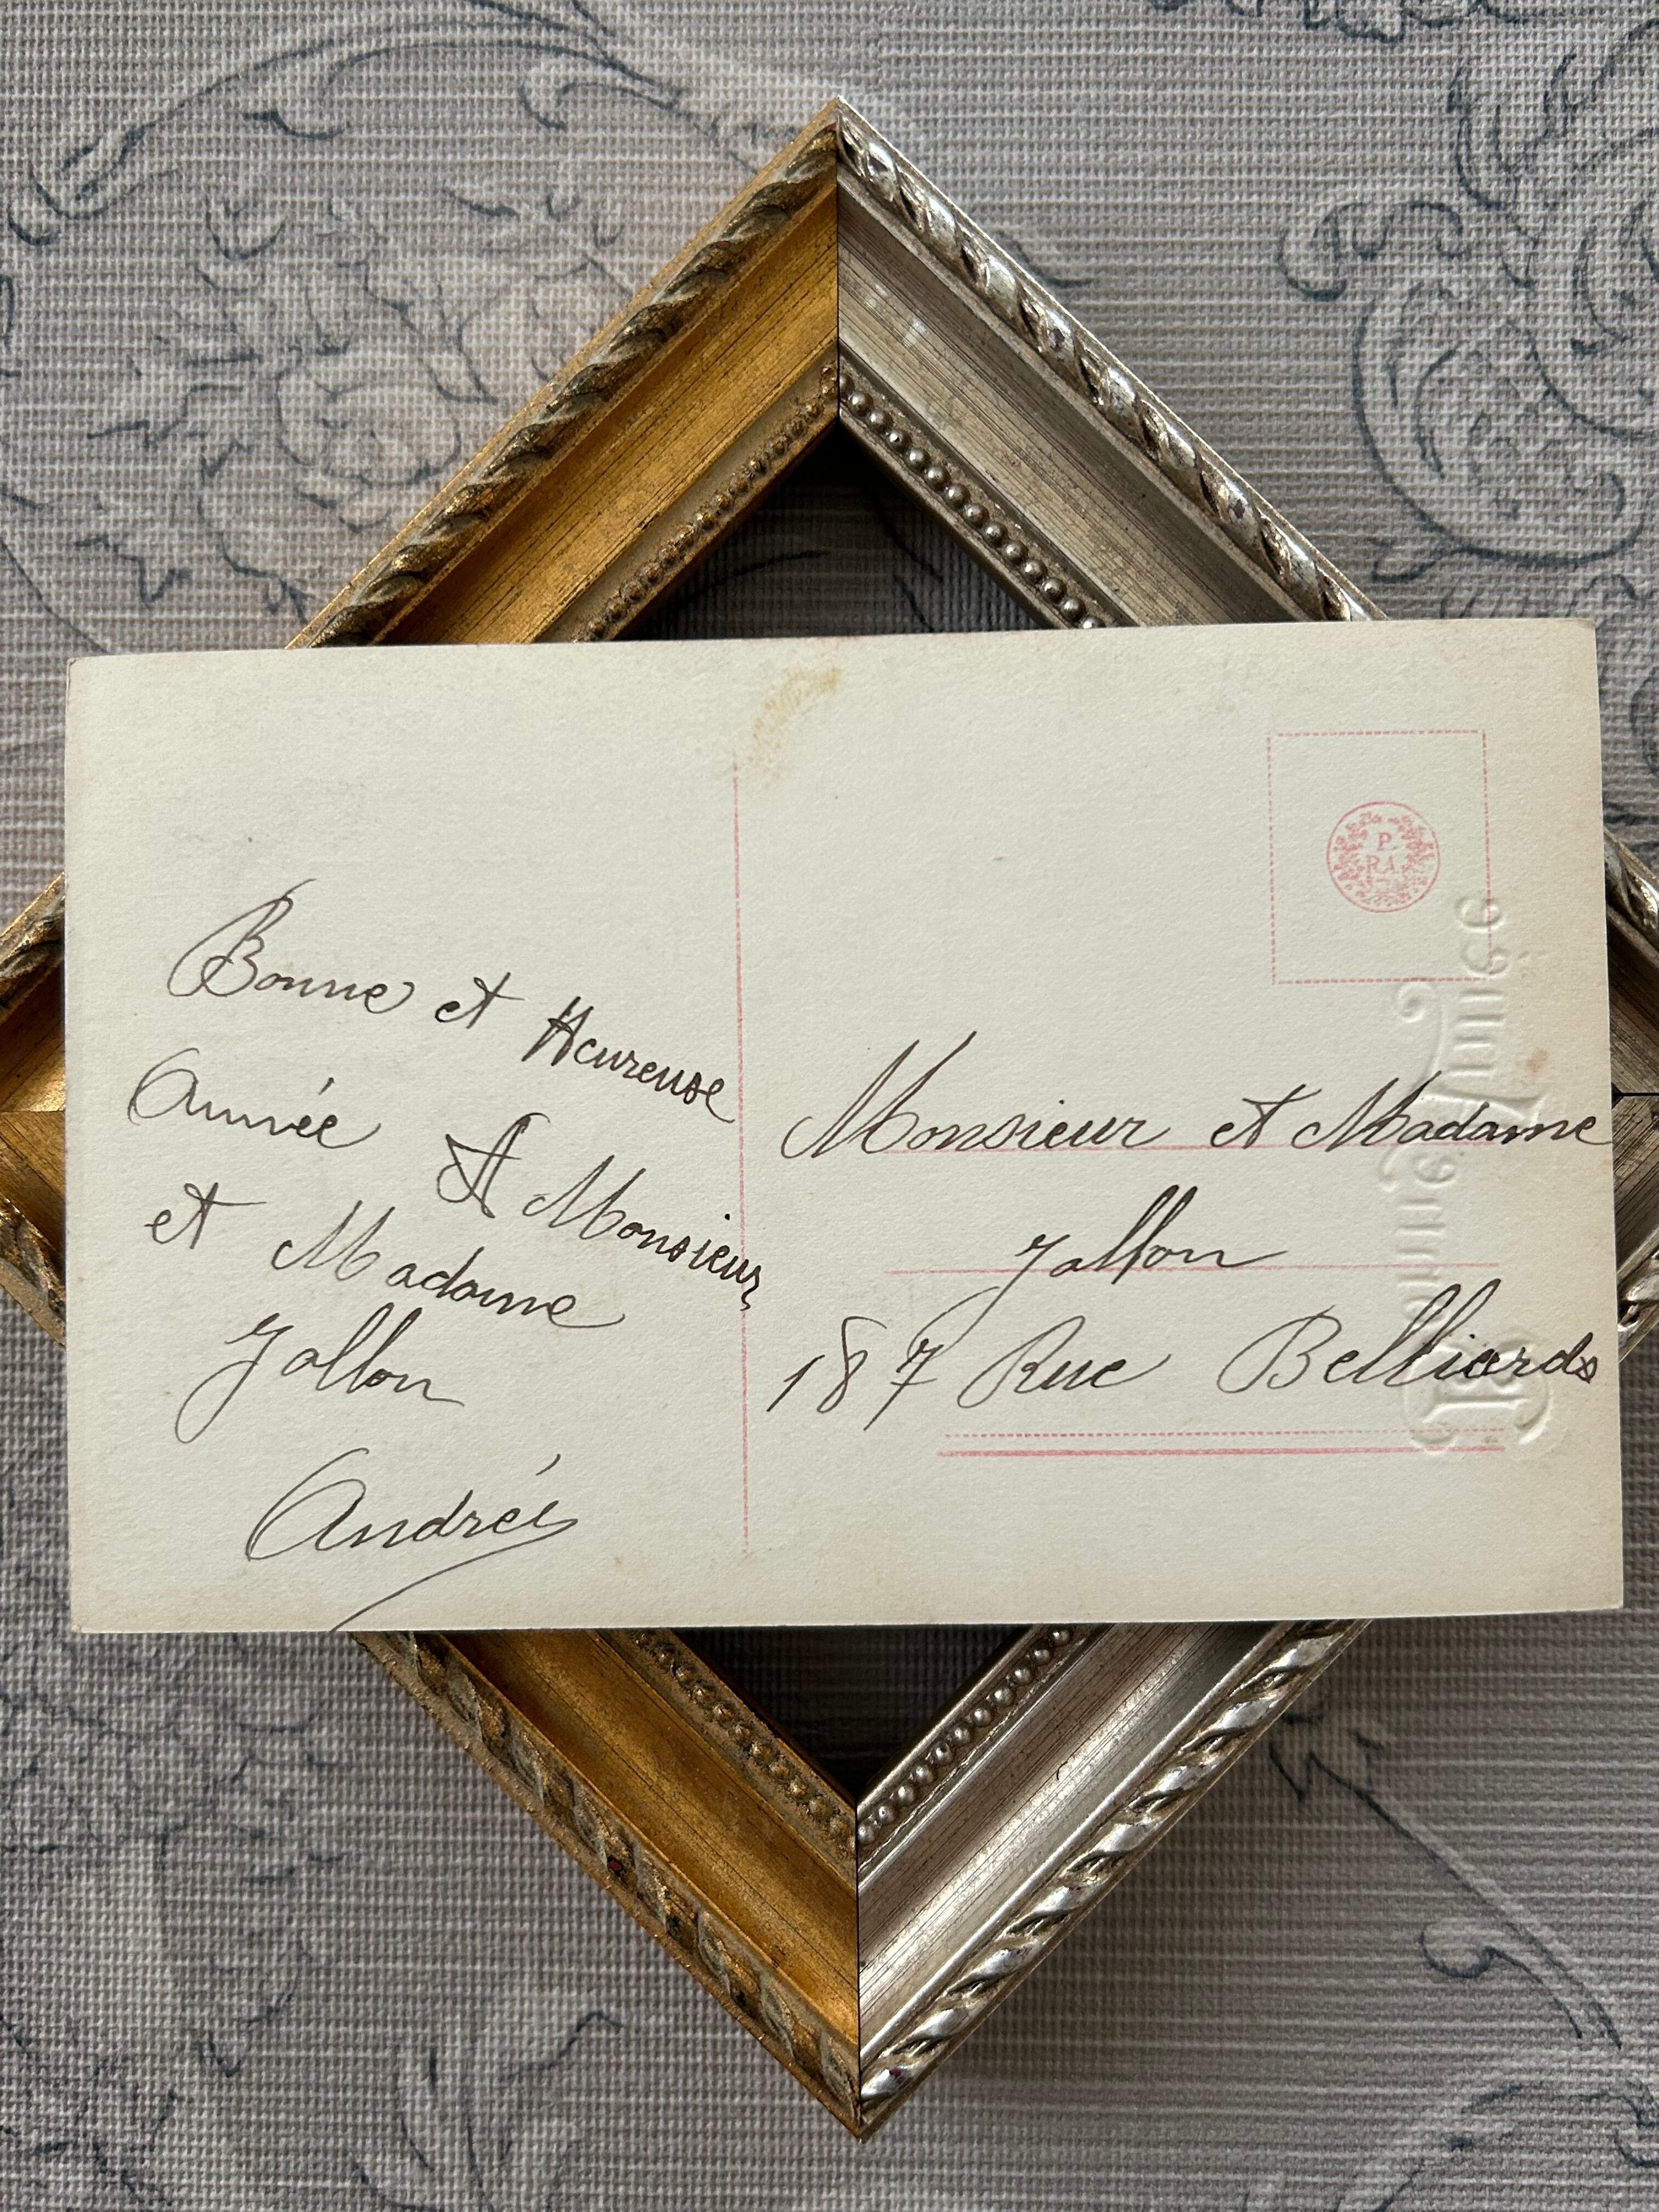 Bonne et Heureuse
Année A Monsieur
et Madame
Jallon
André
P.
R.A.
Monsieur et Madame
Jallon
187 Rue Belliards
Bonne Année